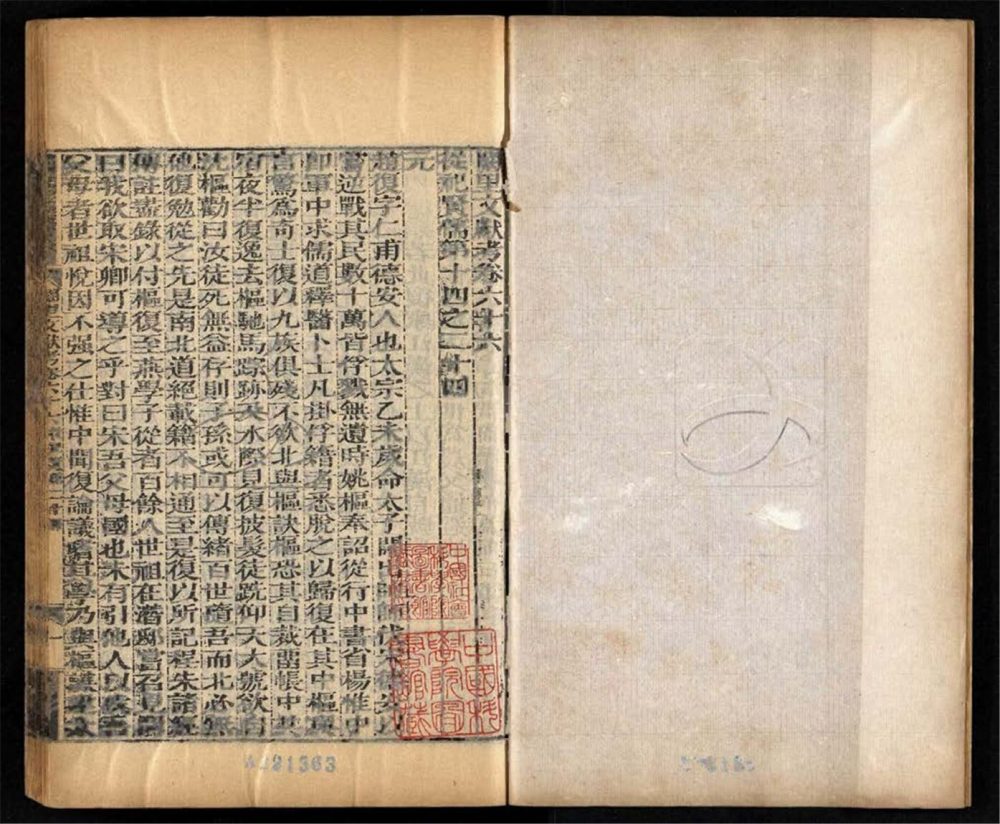 闕里文獻考卷六十六
從祀賢儒第十四之二十四
元
趙復字仁甫德安人也太宗乙未歲命太子闊出帥師伐宋德安以
嘗逆戰其民數十萬皆俘戮無遺時姚樞奉詔從行中書省楊惟中
即軍中求儒道釋醫卜士凡掛俘籍者悉脫之以歸復在其中樞與
言驚為奇士復以九族俱殘不欲北與樞訣樞恐其自裁留帳中共
宿夜半復逸去樞馳馬踪跡及水際見復披髮徒跣仰天大號欲自
沈樞勸曰汝徒死無益存則子孫或可以傳緒百世隨吾而北必無
他復勉從之先是南北道絕載籍不相通至是復以所記程朱諸經
傳註盡錄以付樞復至燕學子從者百餘人世祖在潛邸嘗召見問
曰我欲取宋卿可導之乎對曰宋吾父母國也未有引他人以伐吾
父母者世祖悅因不強之仕惟中聞復論議嗜其學乃與樞謀
中國科
學院圖
書館藏
21363